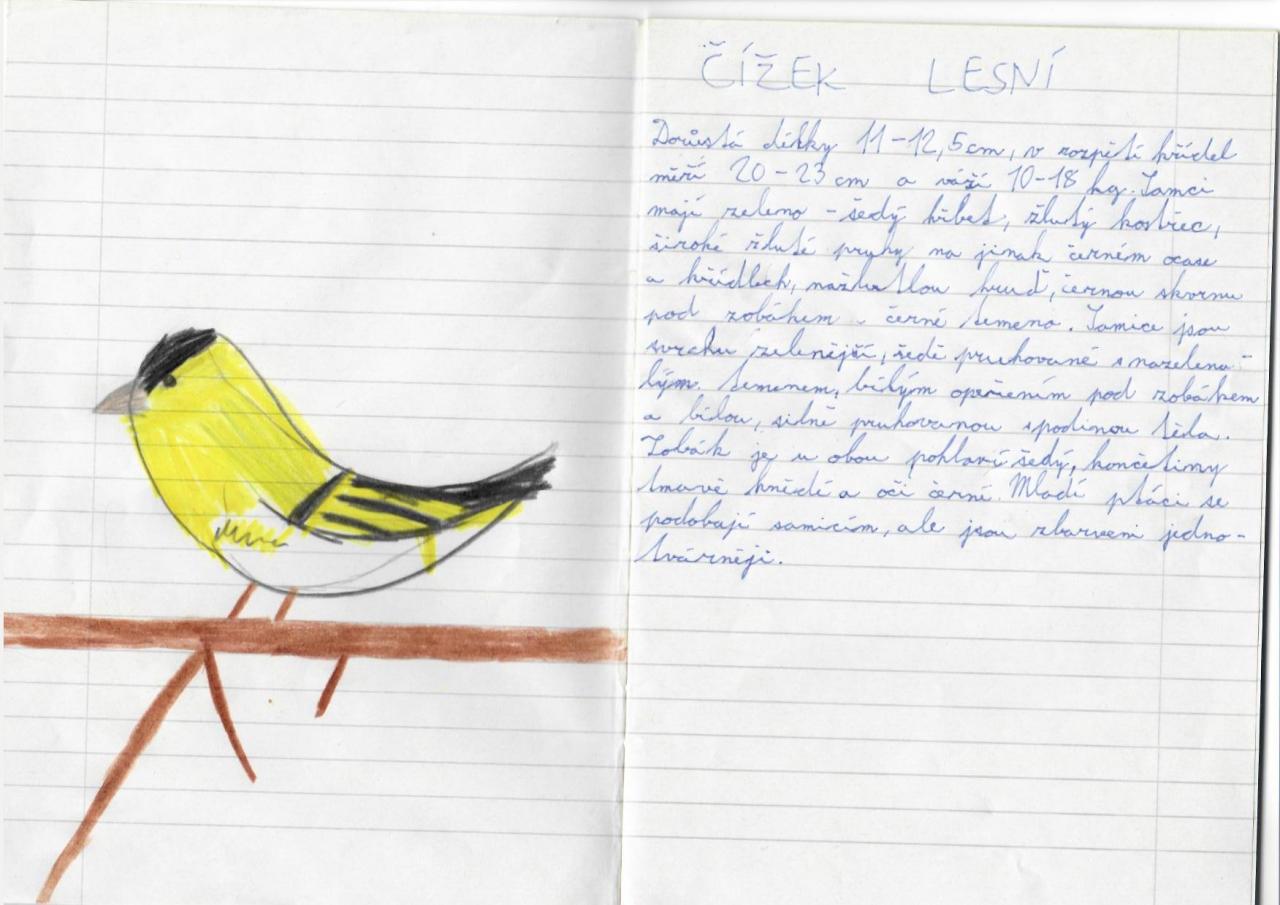 ČÍŽEK LESNÍ
Dorůstá délky 11-12,5cm, v rozpětí křídel
měří 20-23 cm a váží 10-18 kg. Samci
mají zeleno-šedý hřbet, žlutý kostřec,
široké žluté pruhy na jinak černém ocase
a křídlech, nažloutlou hruď, černou skvrnu
pod zobákem a černé temeno. Samice jsou
svrchu zelenější, šedě pruhované s nazelena-
lým temenem, bílým opeřením pod zobákem
a bílou, silně pruhovanou spodinou těla.
Zobák je u obou pohlaví šedý, končetiny
tmavě hnědé a oči černé. Mladí ptáci se
podobají samicím, ale jsou zbarveni jedno-
tvárněji.